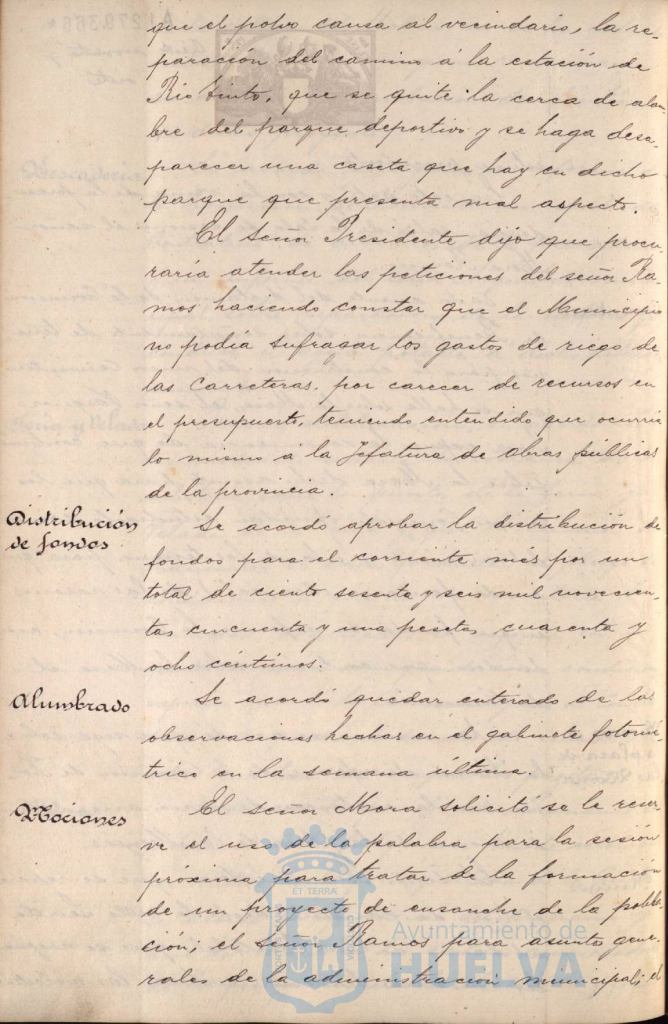 que el polvo causa al vecindario, la re-
paración del camino á la estación de
Rio Tinto, que se quite la cerca de alam-
bre del parque deportivo y se haga desa-
parecer una caseta que hay en dicho
parque que presenta mal aspecto.
El señor Presidente dijo que procu-
raria atender las peticiones del señor Ra-
mos haciendo constar que el Municipio
no podía sufragar los gastos de riego de
las carreteras, por carecer de recursos en
el presupuesto, teniendo entendido que ocurria
lo mismo á la Jefatura de obras públicas
de la provincia.
Distribución
de fondos
Se acordó aprobar la distribución de
fondos para el corriente mes por un
total de ciento sesenta y seis mil novecien-
tas cincuenta y una pesetas cuarenta y
ocho céntimos.
Alumbrado
Se acordó quedar enterado de las
observaciones hechas en el gabinete fotomé-
trico en la semana última.
Mociones
El señor Mora solicitó se le reser-
ve el uso de la palabra para la sesión
próxima para tratar de la formación
de un proyecto de ensanche de la pobla-
ción; el señor Ramos para asuntos gene-
rales de la administración municipal; el
Ayuntamiento de
HUELVA